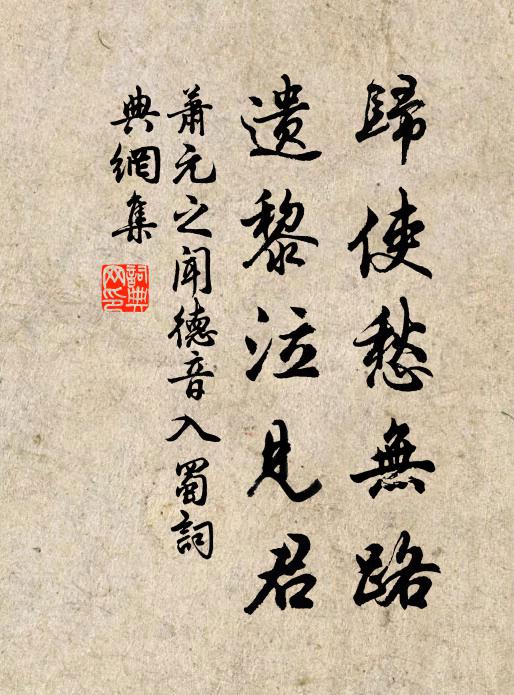 歸使愁無路
遺黎泣見君
蕭元之聞德音入蜀詞
典網集
詞典
网印